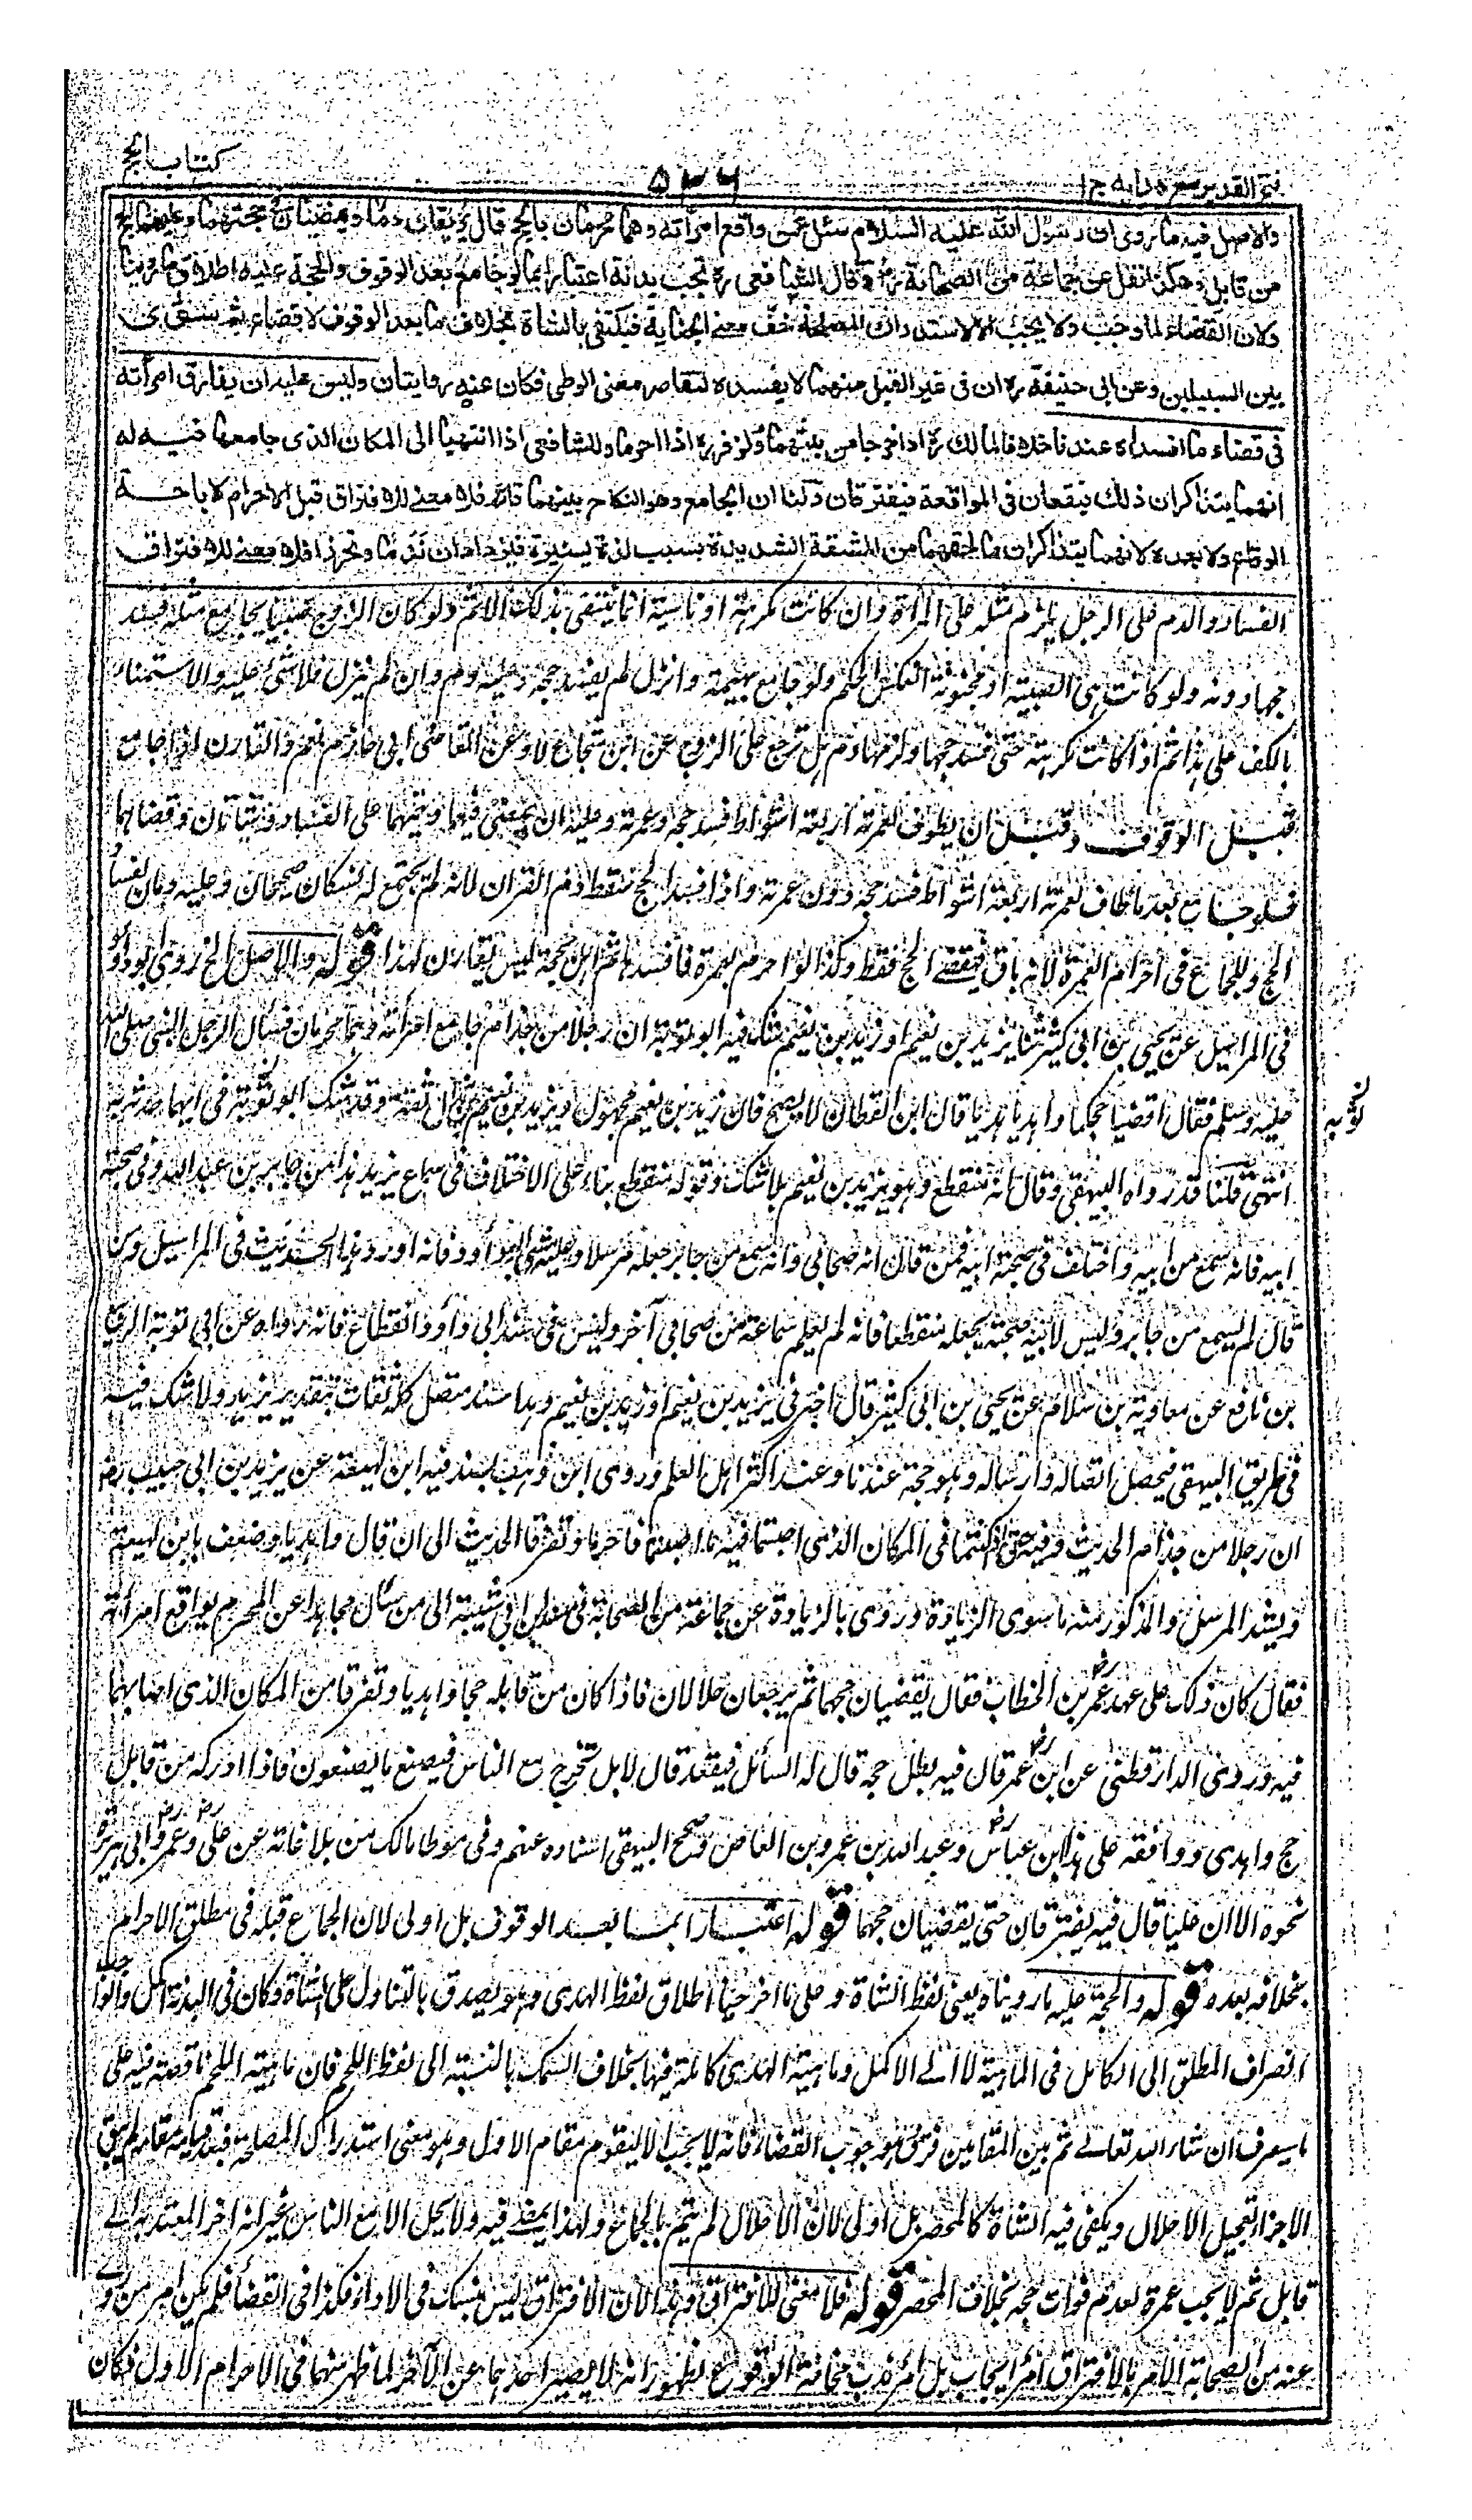 فتح القدير مع هدايه ج ا
٥٣٦
كتاب الحج
والاصل فيه ما روى ان رسول الله عليه السلام سئل عمن واقع امرأته وهما محرمان بالحج قال يريقان دما ويمضيان فى حجتهما وعليهما الحج
من قابل وهكذا نقل عن جماعة من الصحابة رض وقال الشافعى ره تجب بدنة اعتبارا بما لو جامع بعد الوقوف والحجة عليه اطلاق ما روينا
ولان القضاء لما وجب ولا يجب الا لاستدراك المصلحة خف معنى الجناية فيكتفى بالشاة بخلاف ما بعد الوقوف لا قضاء ثم سوّى
بين السبيلين وعن ابى حنيفة ره ان فى غير القبل منهما لا يفسده لتقاصر معنى الوطى فكان عنه روايتان وليس عليه ان يفارق امرأته
فى قضاء ما افسداه عندنا خلافا لمالك ره اذا خرجا من بيتهما ولزفر ره اذا احرما وللشافعى اذا انتهيا الى المكان الذى جامعها فيه له
انهما يتذاكران ذلك فيقعان فى المواقعة فيفترقان ولنا ان الجامع وهو النكاح بينهما قائم فلا معنى للافتراق قبل الاحرام لاباحة
الوقاع ولا بعده لانهما يتذاكران ما لحقهما من المشقة الشديدة بسبب لذة يسيرة فيزدادان ندما وتحرزا فلا معنى للافتراق
الفساد والدم على الرجل يلزم مثله على المرأة وان كانت مكرهة او ناسية انما ينتفى بذلك الاثم ولو كان الزوج صبيا يجامع مثله فسد
حجها دونه ولو كانت هى الصبية او مجنونة انعكس الحكم ولو جامع بهيمة وانزل لم يفسد حجه وعليه دم وان لم ينزل فلا شئ عليه والاستمناء
بالكف على هذا ثم اذا كانت مكرهة حتى فسد حجها ولزمها دم هل ترجع على الزوج عن ابن شجاع لا وعن القاضى ابى حازم نعم والقارن اذا جامع
قبل الوقوف وقبل ان يطوف لعمرته اربعة اشواط فسد حجه وعمرته وعليه ان يمضى فيهما ويتمهما على الفساد وشاتان وقضاؤهما
فلو جامع بعد ما طاف لعمرته اربعة اشواط فسد حجه دون عمرته واذا فسد الحج سقط دم القران لانه لم يجتمع له نسكان صحيحان وعليه دمان لفساد
الحج وللجماع فى احرام العمرة لانه باق فيقضى الحج فقط وكذا لو احرم بعمرة فافسدها ثم اهل بحجة ليس بقارن لهذا قوله والاصل الخ روى ابو داؤد
فى المراسيل عن يحيى بن ابى كثير ثنا يزيد بن نعيم او زيد بن نعيم شك فيه ابو توبة ان رجلا من جذام جامع امرأته وهما محرمان فسأل الرجل النبى صلى الله
عليه وسلم فقال اقضيا حجكما واهديا هديا قال ابن القطان لا يصح فان زيد بن نعيم مجهول ويزيد بن نعيم بن هزال ثقة وقد شك ابو توبة فى ايهما حدثه به
توبه
انتهى قلنا قد رواه البيهقى وقال انه منقطع وهو يزيد بن نعيم بلا شك وقوله منقطع بناء على الاختلاف فى سماع يزيد هذا من جابر بن عبد الله وفى صحبة
ابيه فانه سمع من ابيه واختلف فى صحبة ابيه فمن قال انه صحابى وانه سمع من جابر جعله مرسلا وعليه مشى ابو داؤد فانه اورد هذا الحديث فى المراسيل ومن
قال لم يسمع من جابر وليس لابيه صحبة يجعله منقطعا فانه لم يعلم سماعه من صحابى آخر وليس فى سند ابى داؤد انقطاع فانه رواه عن ابى توبة الربيع
بن نافع عن معاوية بن سلام عن يحيى بن ابى كثير قال اخبرنى يزيد بن نعيم او زيد بن نعيم وهذا سند متصل كله ثقات بتقدير يزيد ولا شك فيه
فى طريق البيهقى فيحصل اتصاله وارساله وهو حجة عندنا وعند اكثر اهل العلم وروى ابن وهب بسند فيه ابن لهيعة عن يزيد بن ابى حبيب
ان رجلا من جذام الحديث وفيه حتى اذا كنتما فى المكان الذى اصبتما فيه ما اصبتما فاحرما وتفرقا الحديث الى ان قال واهديا وضعف بابن لهيعة
ويشد المرسل والمذكور منه ما سوى الزيادة وروى بالزيادة عن جماعة من الصحابة فى مسند ابن ابى شيبة الى من سأل مجاهدا عن المحرم يواقع امرأته
فقال كان ذلك على عهد عمر بن الخطاب رض فقال يقضيان حجهما ثم يرجعان حلالان فاذا كان من قابل حجا واهديا وتفرقا من المكان الذى اصابهما
فيه وروى الدارقطنى عن ابن عمر رض قال فيه بطل حجه قال له السائل فيقعد قال لا بل يخرج مع الناس فيصنع ما يصنعون فاذا ادركه من قابل
حج واهدى ووافقه على هذا ابن عباس رض وعبد الله بن عمرو بن العاص وصحح البيهقى اسناده عنهم وفى موطا مالك من بلاغاته عن على وعمر وابى هريرة
نحوه الا ان عليا قال فيه يفترقان حتى يقضيان حجهما قوله اعتبارا بما بعد الوقوف بل اولى لان الجماع قبله فى مطلق الاحرام
بخلافه بعده قوله والحجة عليه ما رويناه يعنى لفظ الشاة وعلى ما اخرجنا اطلاق لفظ الهدى وهو يصدق بالتناول على الشاة وكان فى البدنة اكمل والواجب
انصراف المطلق الى الكامل فى الماهية لا الى الاكمل وماهية الهدى كاملة فيها بخلاف السمك بالنسبة الى لفظ اللحم فان ماهية اللحم ناقصة فيه على
ما سيعرف ان شاء الله تعالى ثم بين المقامين فرق هو وجوب القضاء فانه لا يجب الا ليقوم مقام الاول وهو معنى استدراك المصلحة فبعد قيامه مقامه لم يبق
الا جزاء تعجيل الاحلال ويكفى فيه الشاة كالمحصر بل اولى لان الاحلال لم يتم بالجماع ولهذا يمضى فيه ولا يحل الا مع الناس غير انه اخر المعتد به الى
قابل ثم لا يجب عمرة لعدم فوات حجه بخلاف المحصر قوله فلا معنى للافتراق وهذا لان الافتراق ليس بنسك فى الاداء فكذا فى القضاء فلم يكن امر من روى
عنه من الصحابة الامر بالافتراق امر ايجاب بل امر ندب مخافة الوقوع لظهور انه لا يصبر احدهما عن الآخر لما ظهر منهما فى الاحرام الاول فكان